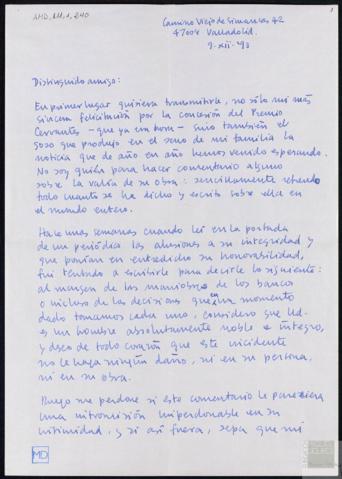 AMD, 111, 1, 240
Camino Viejo de Simancas 42
47008 Valladolid.
9-XII-93
Distinguido amigo:
En primer lugar quisiera transmitirle, no sólo mi más
sincera felicitación por la concesión del Premio
Cervantes -que ya era hora- sino también el
gozo que produjo en el seno de mi familia la
noticia que de año en año hemos venido esperando.
No soy quién para hacer comentario alguno
sobre la valía de su obra: sencillamente refrendo
todo cuanto se ha dicho y escrito sobre ella en
el mundo entero.
Hace unas semanas cuando leí en la portada
de un periódico las alusiones a su integridad y
que ponían en entredicho su honorabilidad,
fui tentado a escribirle para decirle lo siguiente:
al margen de las maniobras de los bancos
o incluso de las decisiones que en un momento
dado tomamos cada uno, considero que Ud.
es un hombre absolutamente noble e íntegro,
y deseo de todo corazón que este incidente
no le haga ningún daño, ni en su persona,
ni en su obra.
Ruego me perdone si este comentario le pareciera
una intromisión imperdonable en su
intimidad, y si así fuera, sepa que mi
MD